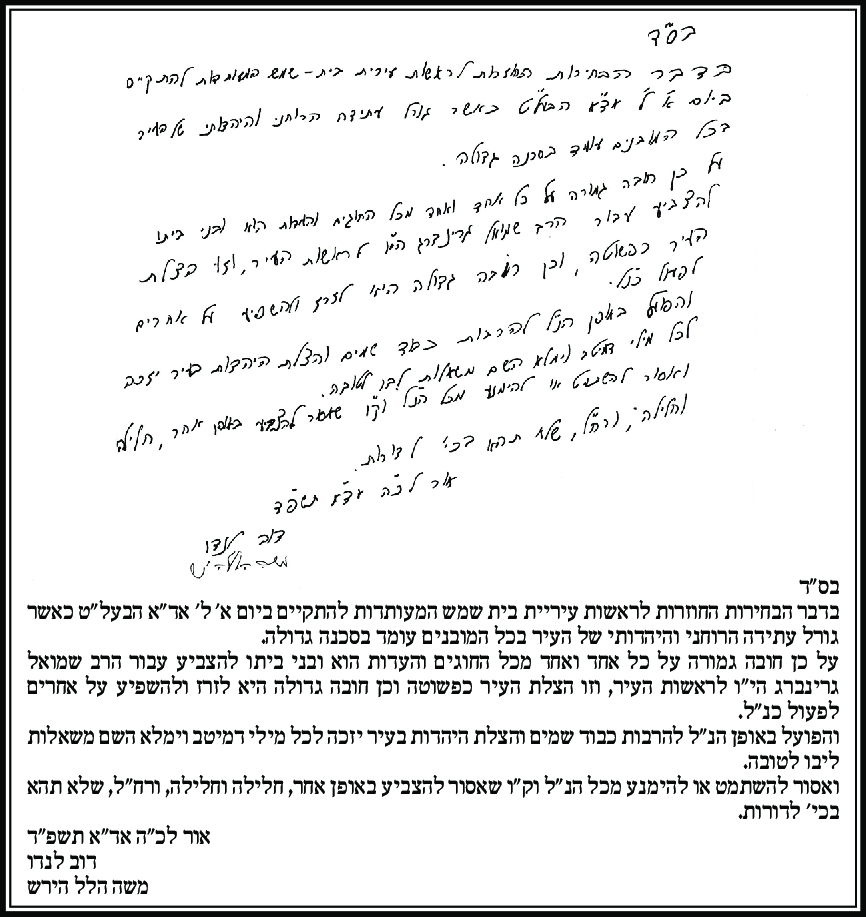 בס"ד
בדבר הבחירות החוזרות לראשות עירית בית-שמש המעותדות להתקיים
ביום א' ל' אד"א הבעל"ט כאשר גורל עתידה הרוחני והיהדותי של העיר
בכל המובנים עומד בסכנה גדולה.
על כן חובה גמורה על כל אחד ואחד מכל החוגים והעדות הוא ובני ביתו
להצביע עבור הרב שמואל גרינברג הי"ו לראשות העיר, וזו הצלת
העיר כפשוטה, וכן חובה גדולה היא לזרז ולהשפיע על אחרים
לפעול כנ"ל.
והפועל באופן הנ"ל להרבות כבוד שמים והצלת היהדות בעיר יזכה
לכל מילי דמיטב וימלא השם משאלות לבו לטובה.
ואסור להשתמט או להימנע מכל הנ"ל וק"ו שאסור להצביע באופן אחר, חלילה
וחלילה, ורח"ל, שלא תהא בכי' לדורות.
אור לכ"ה אד"א תשפ"ד
דוב לנדו
משה הלל הירש
בס"ד
בדבר הבחירות החוזרות לראשות עיריית בית שמש המעותדות להתקיים ביום א' ל' אד"א הבעל"ט כאשר
גורל עתידה הרוחני והיהדותי של העיר בכל המובנים עומד בסכנה גדולה.
על כן חובה גמורה על כל אחד ואחד מכל החוגים והעדות הוא ובני ביתו להצביע עבור הרב שמואל
גרינברג הי"ו לראשות העיר, וזו הצלת העיר כפשוטה וכן חובה גדולה היא לזרז ולהשפיע על אחרים
לפעול כנ"ל.
והפועל באופן הנ"ל להרבות כבוד שמים והצלת היהדות בעיר יזכה לכל מילי דמיטב וימלא השם משאלות
ליבו לטובה.
ואסור להשתמט או להימנע מכל הנ"ל וק"ו שאסור להצביע באופן אחר, חלילה וחלילה, ורח"ל, שלא תהא
בכי' לדורות.
אור לכ"ה אד"א תשפ"ד
דוב לנדו
משה הלל הירש